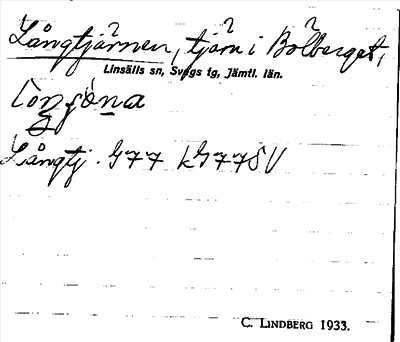 Långtjärnen, tjärn i Bolberget,
Linsälls sn, Svegs tg, Jämtl. län.
Långtj. G77 kG77SV
C. LINDBERG 1933.